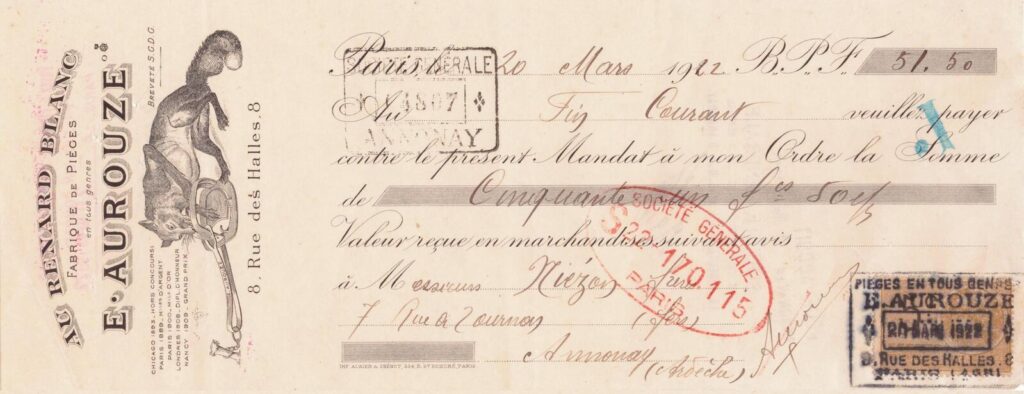 AU RENARD BLANC
FABRIQUE DE PIÈGES
en tous genres
E. AUROUZE
BREVETÉ S.G.D.G.
CHICAGO 1893. HORS CONCOURS
PARIS 1899. MLLE D'ARGENT
PARIS 1900. MLLE D'OR
LONDRES 1908. DIPL. D'HONNEUR
NANCY 1909. GRAND PRIX
8, Rue des Halles, 8
Paris, le 20 Mars 1922 B.P.F. 51.50
SOCIÉTÉ GÉNÉRALE
14807
ANNONAY
Au Fin Courant veuillez payer
contre le présent Mandat à mon Ordre la Somme
de Cinquante un fcs 50 c/s
Valeur reçue en marchandises suivant avis
SOCIÉTÉ GÉNÉRALE
S 22
170.115
PARIS
à Messieurs Niézon
7 Rue de Tournon
Annonay
(Ardèche)
Aurouze
PIEGES EN TOUS GENRES
E. AUROUZE
20 MAR 1922
8. RUE DES HALLES. 8
PARIS
PARIS